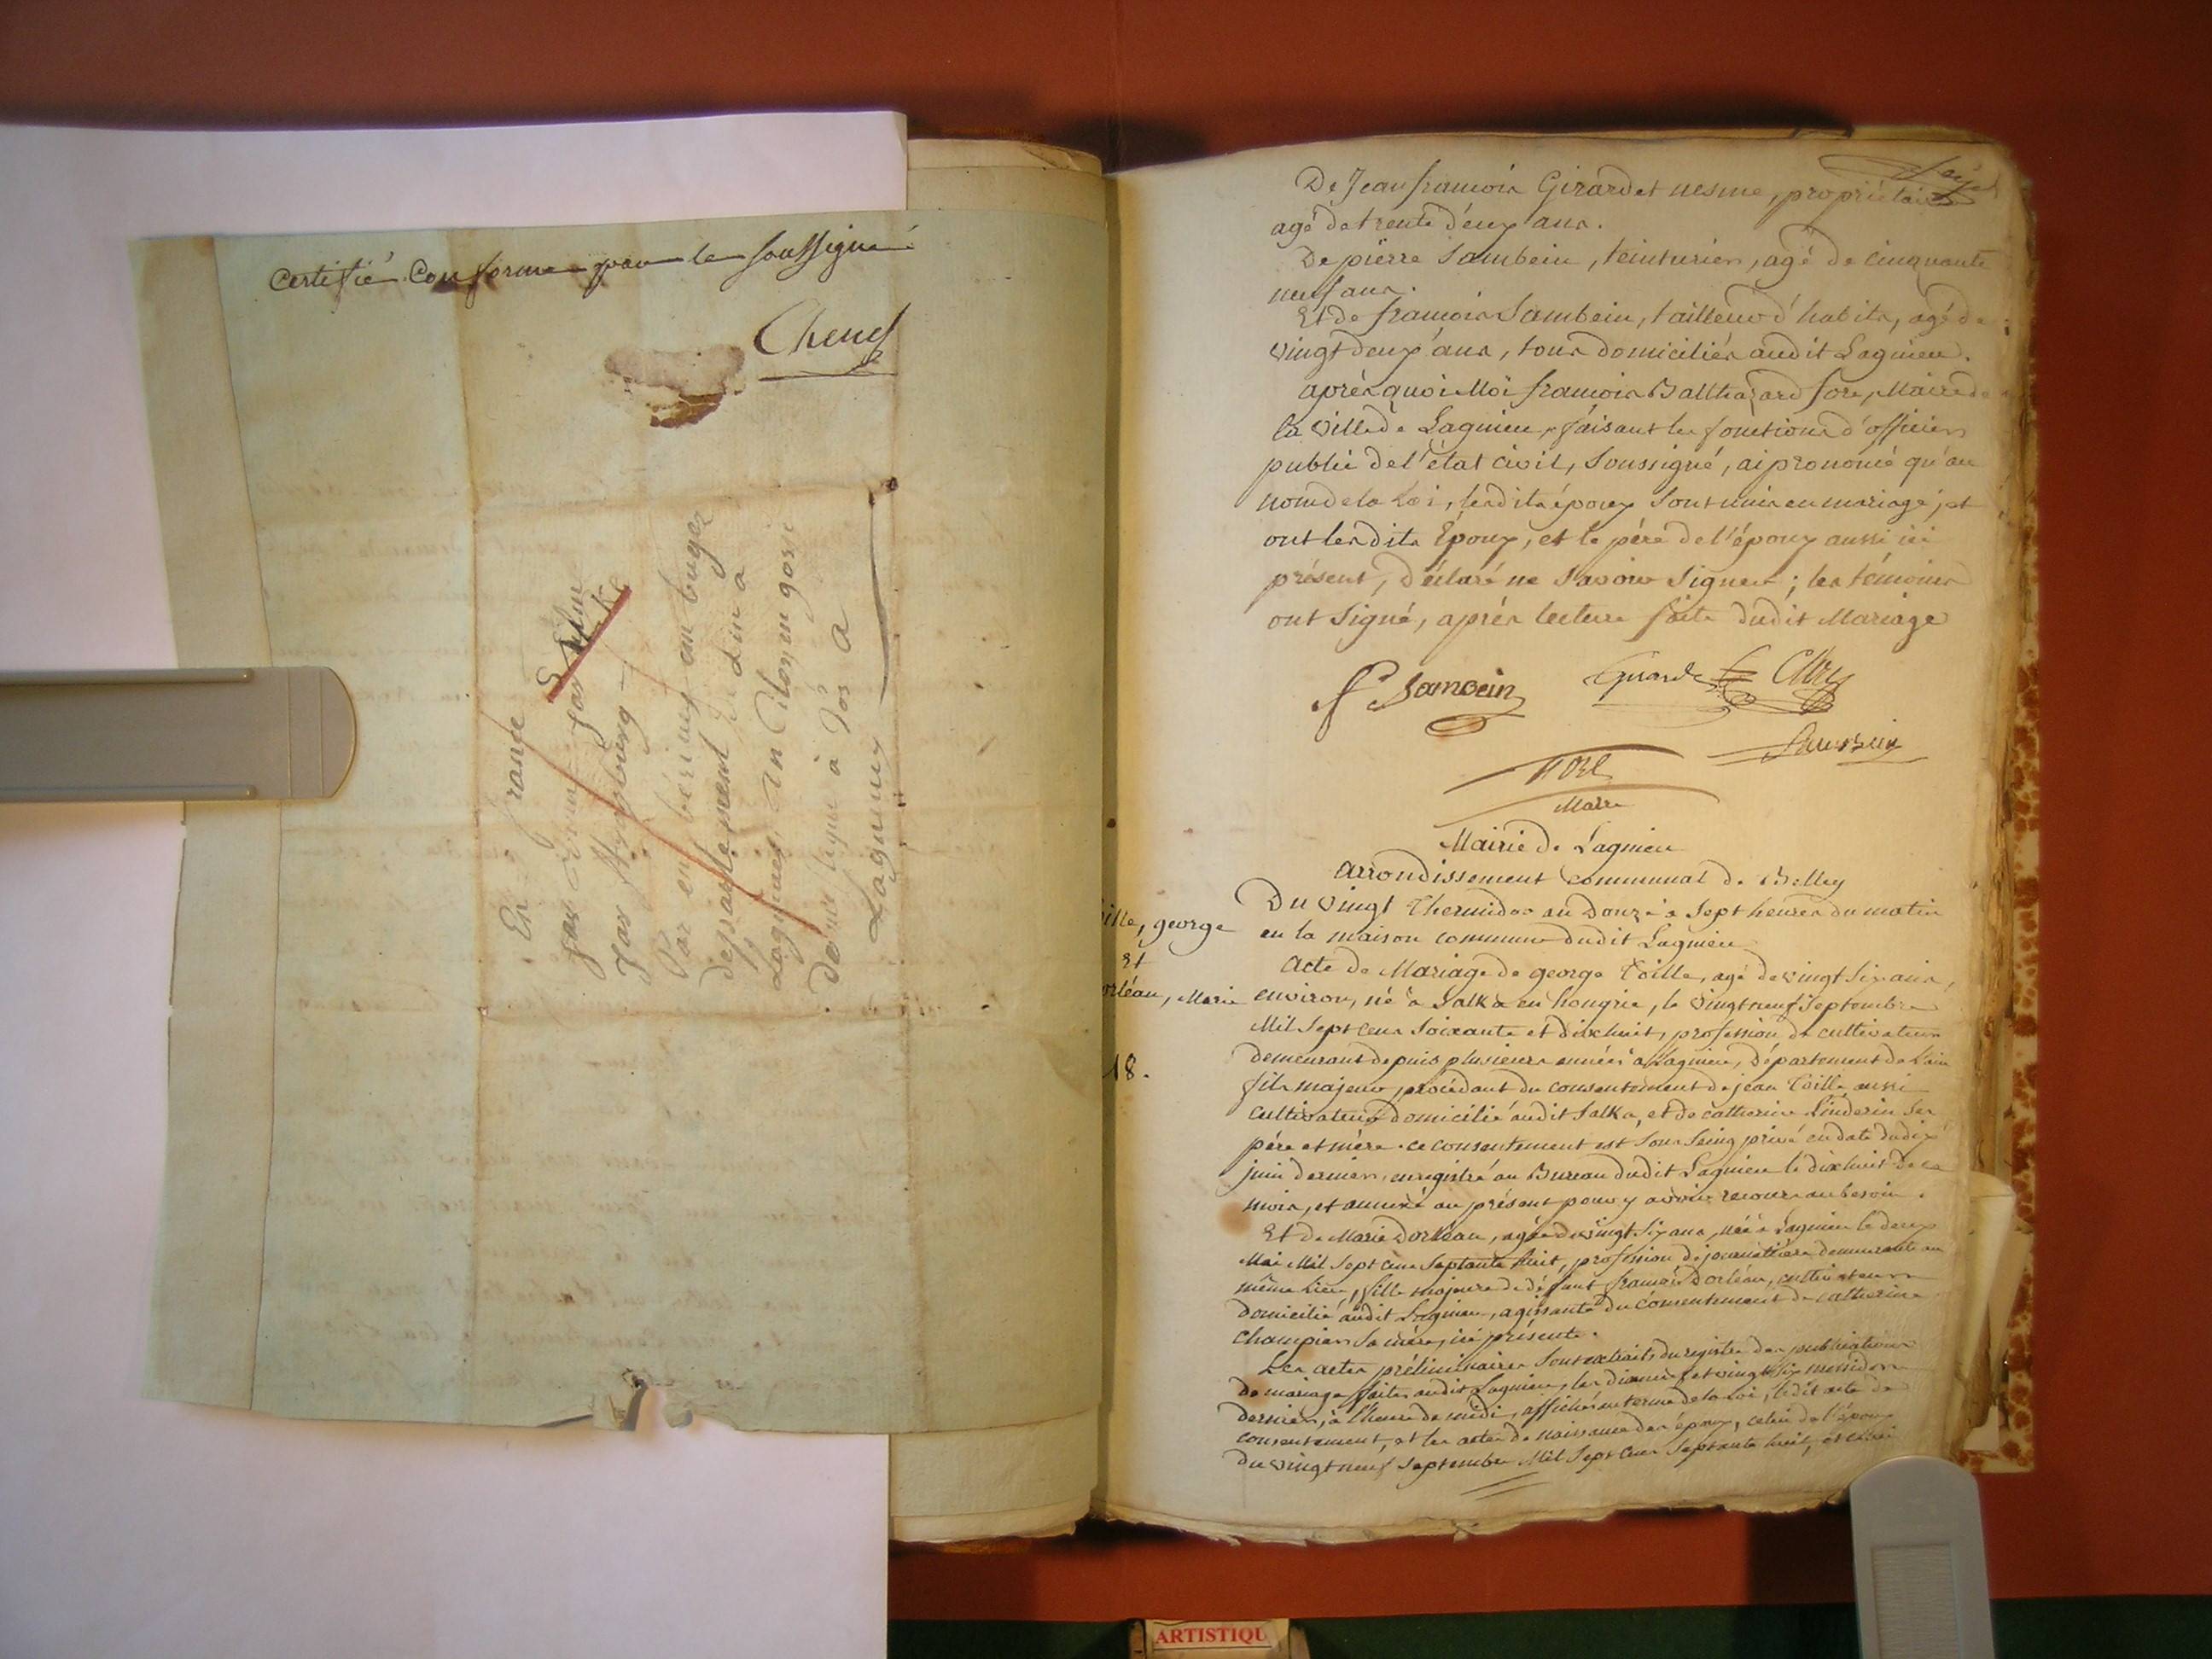 Certifié Conforme par le soussigné
Chenel
En france
par
par Strasbourg
Par en bérieux en bugez
departement de din a
Lagnieux, an Citoyin gosri
à
Lagnieux
De Jean françois Girardet nesme, propriétaire
agé de trente deux ans.
De pierre Sambein, teinturier, agé de cinquante
neuf ans.
Et de françois Sambein, tailleur d'habits, agé de
vingt deux ans, tous domiciliés audit Lagnieu.
après quoi Moi françois Balthazard fore, Maire de
la ville de Lagnieu, faisant les fonctions d'officier
public de l'état civil, soussigné, ai prononcé qu'au
nom de la Loi, lesdits époux sont unis en mariage; et
ont lesdits Époux, et le père de l'époux aussi ici
présent, déclaré ne savoir signer; les témoins
ont signé, après lecture faite dudit Mariage
f. Sambein Girardet Clery
Sambein
fore
Maire
Mairie de Lagnieu
arrondissement communal de Belley
Du vingt Thermidor an Douze à sept heures du matin
en la maison commune dudit Lagnieu
ille, george
Et
orléan, Marie
18.
Acte de Mariage de george Coille, agé de vingt six ans,
environ, né à Salka en hongrie, le vingt neuf septembre
Mil sept cens soixante et dix huit, profession de cultivateur
demeurant depuis plusieurs années à Lagnieu, Département de l'ain
fils majeur, procédant du consentement de jean Coille aussi
cultivateur domicilié audit Salka, et de catherine Linderin ses
père et mère. ce consentement est sous seing privé en date du dix
juin dernier, enregistré au Bureau dudit Lagnieu le dix huit de ce
mois, et annexé au présent pour y avoir recours au besoin.
Et de Marie Dorléan, agée de vingt six ans, née à Lagnieu le deux
Mai Mil sept cens septante huit, profession de journalière demeurante au
même lieu, fille majeure de défunt françois Dorléan, cultivateur
domicilié audit Lagnieu, agissante du consentement de catherine
Champier sa mère, ici présente.
Les actes préliminaires sont extraits du registre des publications
de mariage faites audit Lagnieu, les dixneuf et vingt six messidor
dernier, à l'heure de midi, affichés au terme de la Loi, ledit acte de
consentement, et les actes de naissance des époux, celui de l'époux
du vingt neuf septembre Mil sept cens septante huit, et celui
ARTISTIQU